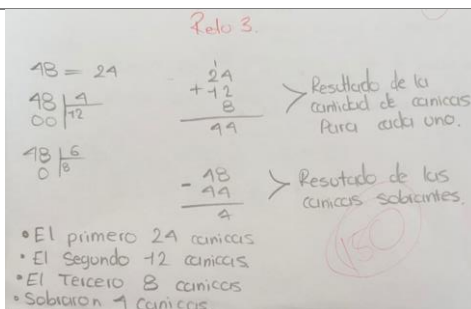 Reto 3.
48 = 24
48 | 4
00 | 12
48 | 6
0 | 8
1
24
+ 12
8
44
> Resultado de la
cantidad de canicas
Para cada uno.
- 48
44
4
> Resutado de las
canicas sobrantes.
150
• El primero 24 canicas
• El Segundo 12 canicas
• El Tercero 8 canicas
• Sobraron 4 canicas